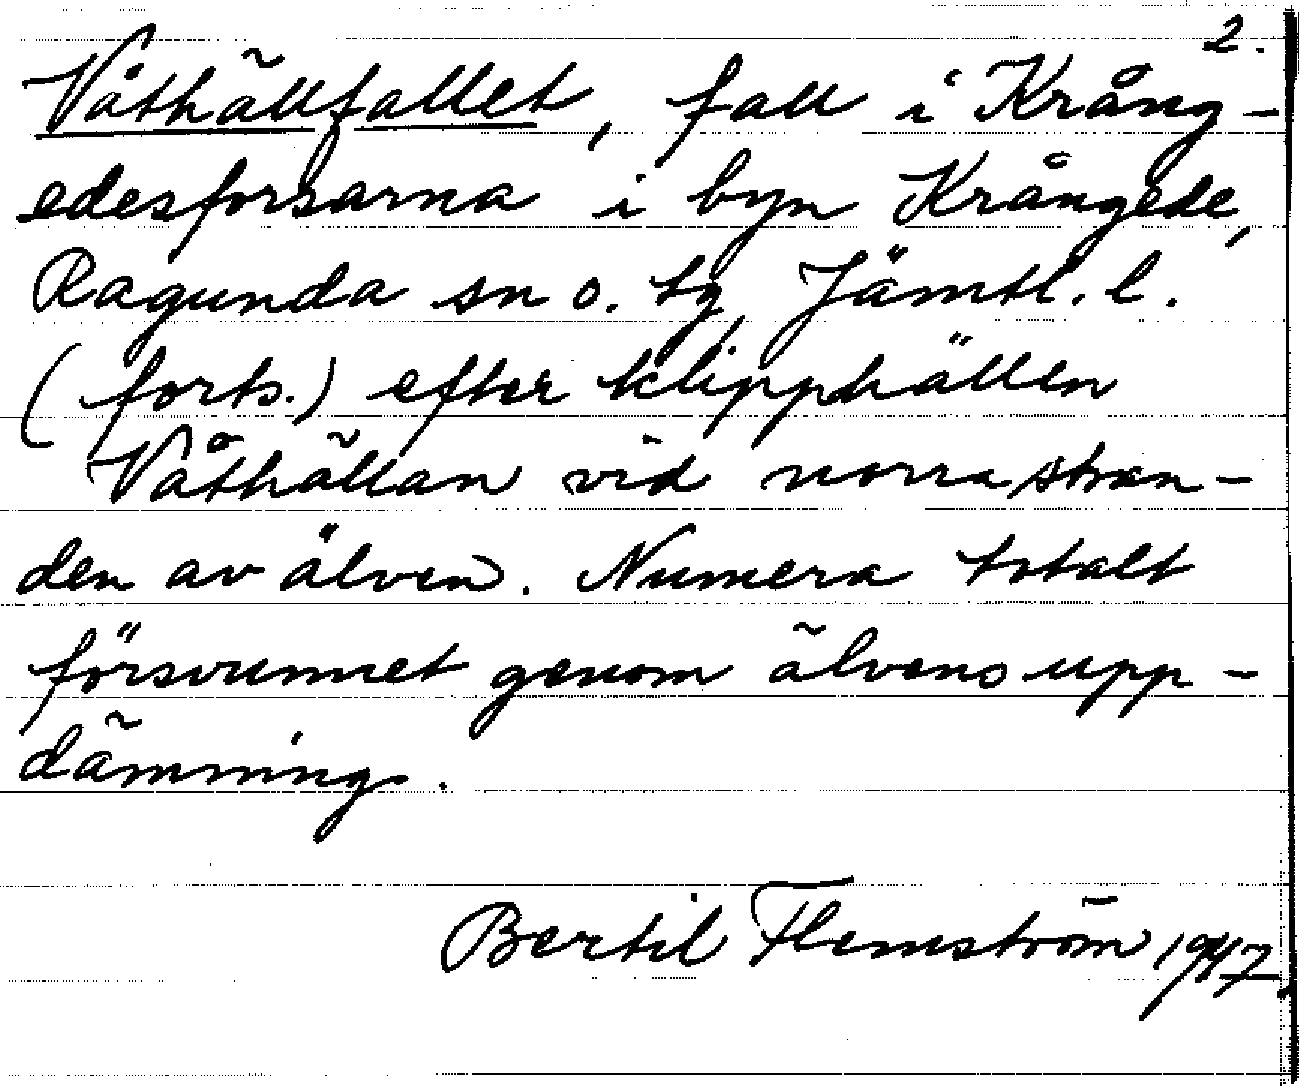 2.
Våthällfallet, fall i Krång-
edesforsarna i byn Krångede,
Ragunda sn o. tg, Jämtl. l.
(forts.) efter klipphällen
Våthällan vid norra stran-
den av älven. Numera totalt
försvunnet genom älvens upp-
dämning.
Bertil Flemström 1947.